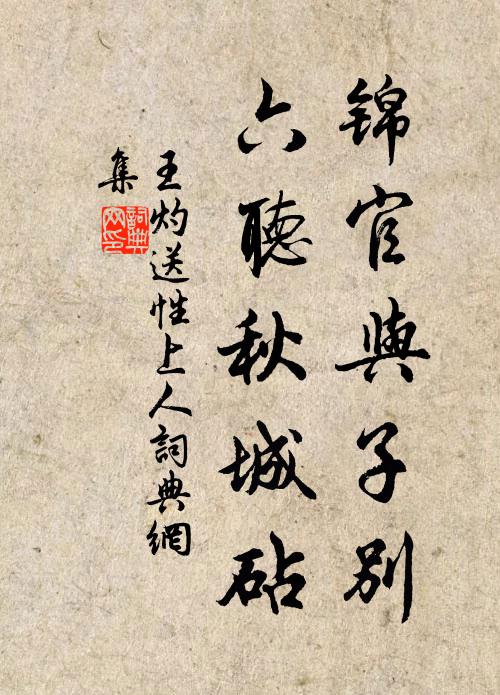 锦官與子别
六聽秋城砧
王灼送性上人詞典網
集
詞典
网印